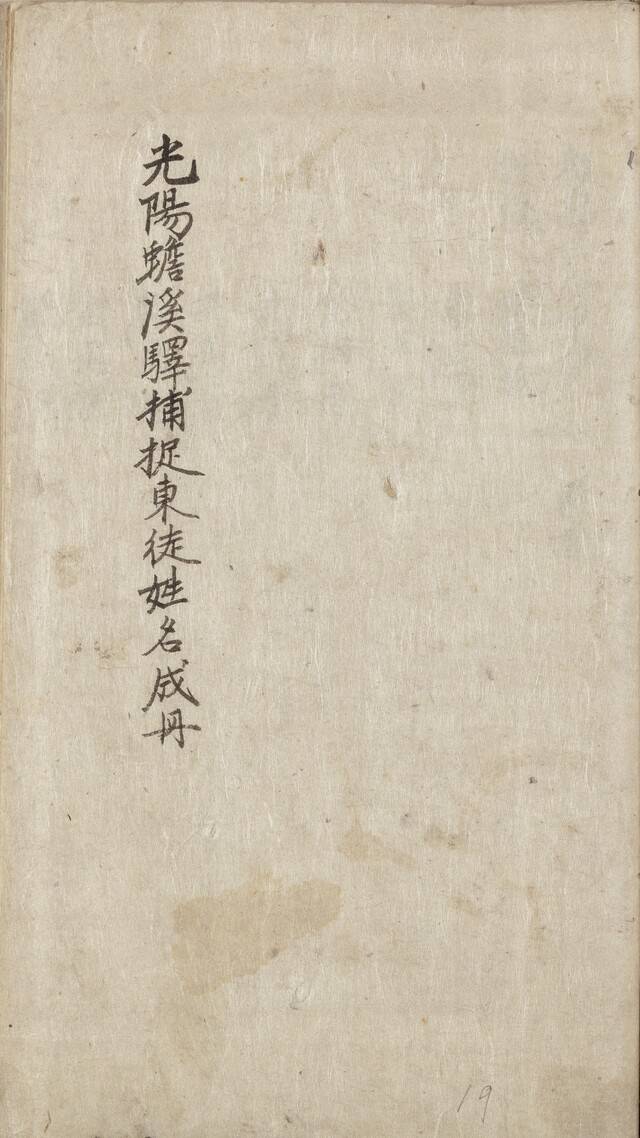 光陽蟾溪驛捕捉東徒姓名成冊
19